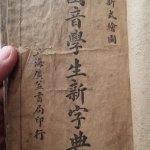 新式繪圖
國音學生新字典
上海廣益書局印行